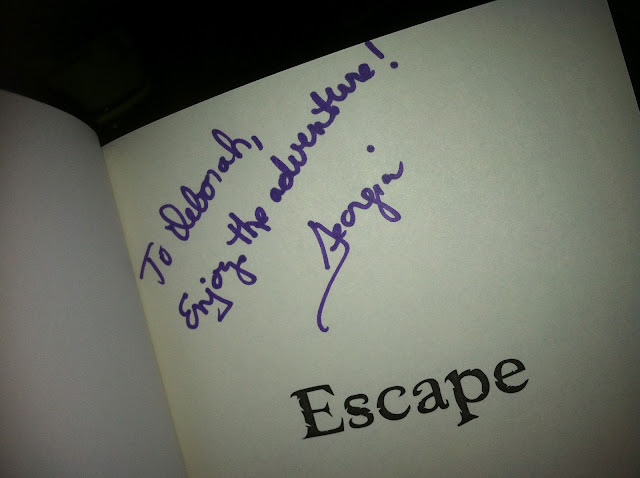 To Deborah,
Enjoy the adventure!
Georgia
Escape